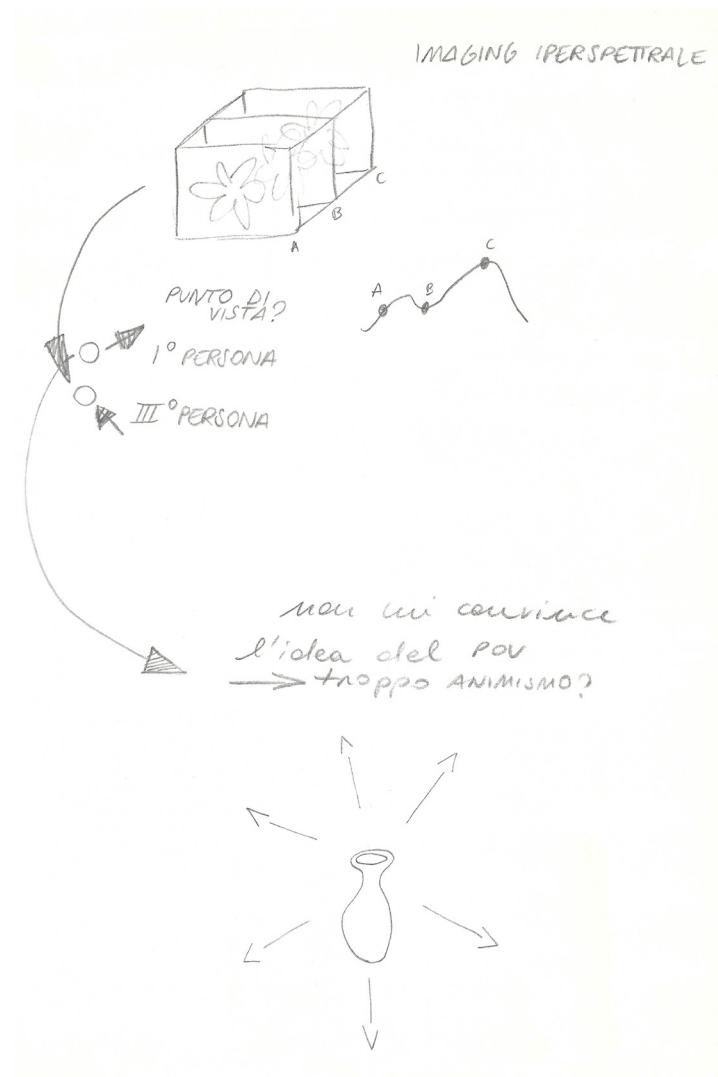 IMAGING IPERSPETTRALE
C
B
A
C
A B
PUNTO DI
VISTA?
I° PERSONA
III° PERSONA
non mi convince
l'idea del POV
→ troppo ANIMISMO?